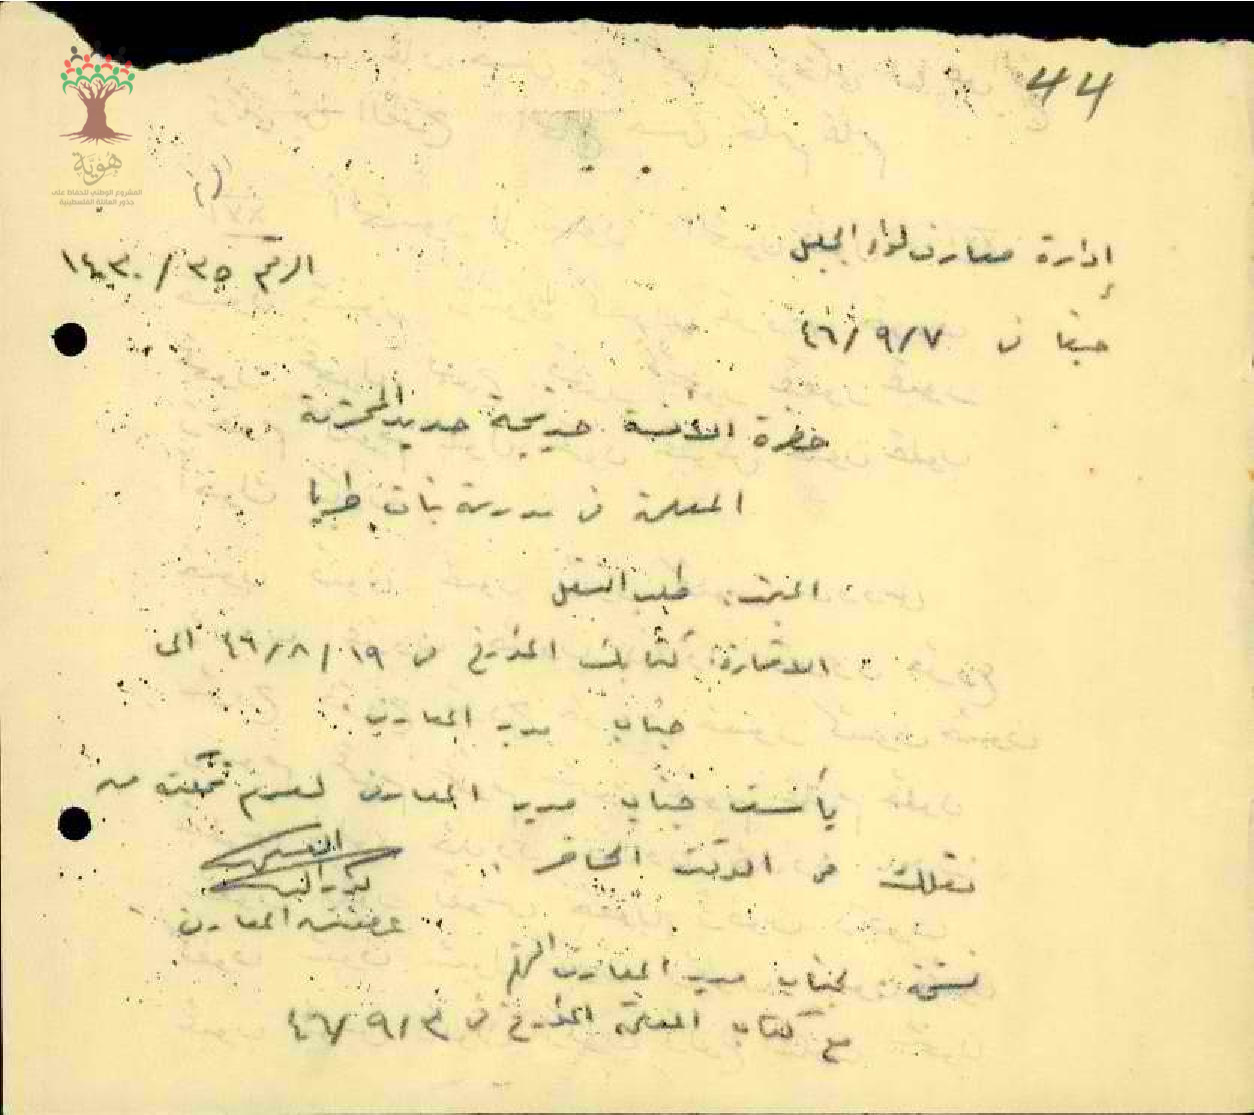 44
هوية
المشروع الوطني للحفاظ على
جذور العائلة الفلسطينية
إدارة معارف لواء الجليل
الرقم ٣٥/١٤٣٠
حيفا في ٤٦/٩/٧
حضرة الآنسة خديجة حديد المحترمة
المعلمة في مدرسة بنات طبريا
المبحث: طلب النقل
الاشارة: كتابك المؤرخ في ٤٦/٨/١٩ الى
جناب مدير المعارف
يأسف جناب مدير المعارف لعدم تمكنه من
نقلك في الوقت الحاضر
مفتش المعارف
نسخة لجناب مدير المعارف
مع كتاب المعلمة المؤرخ في ٤٦/٩/٣